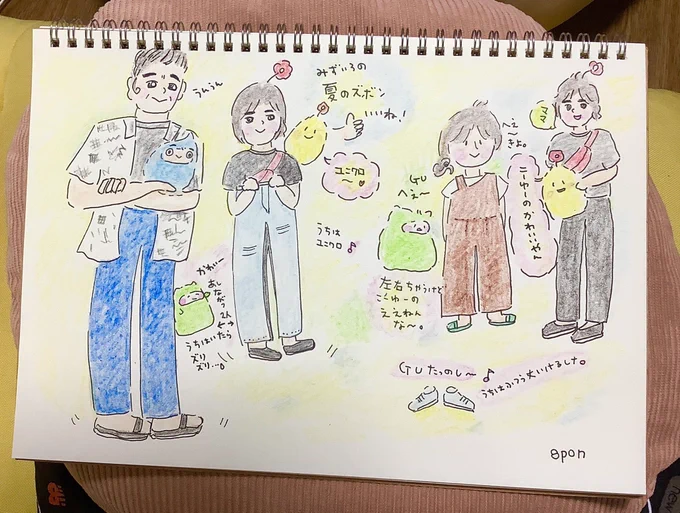 うんうん
みずいろの
夏のズボン
いいね！
ユニクロ
〜
うちは
ユニクロ♪
かわいー
あし
ながっ
2人
うちはいたら
ズリ
ズリ…。
GU
へぇ〜
左右ちゃうけど
こーゆーの
ええねん
な〜。
へぇ
〜
きよ。
こーゆーのかわいいやん
ママ
GUたっのし〜♪
うちはふつう丈いけましたな。
8pon